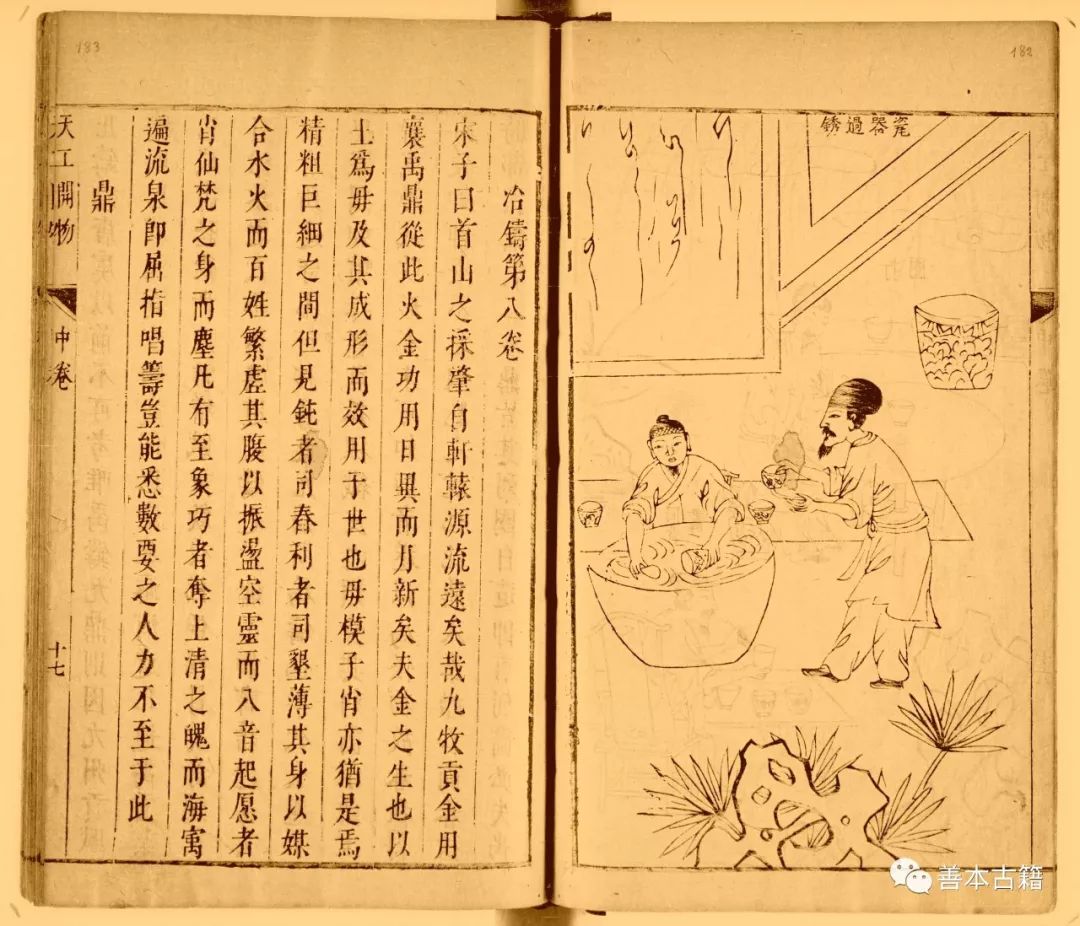 182
瓷器過銹
183
冶鑄第八卷
宋子曰首山之採肇自軒轅源流遠矣哉九牧貢金用
襄禹鼎從此火金功用日異而月新矣夫金之生也以
土爲母及其成形而效用于世也母模子肖亦猶是焉
精粗巨細之間但見鈍者司舂利者司墾薄其身以媒
合水火而百姓繁虛其腹以振盪空靈而八音起愿者
肖仙梵之身而塵凡有至象巧者奪上清之魄而海寓
遍流泉卽屈指唱籌豈能悉數要之人力不至于此
鼎
天工開物 中卷 十七
善本古籍